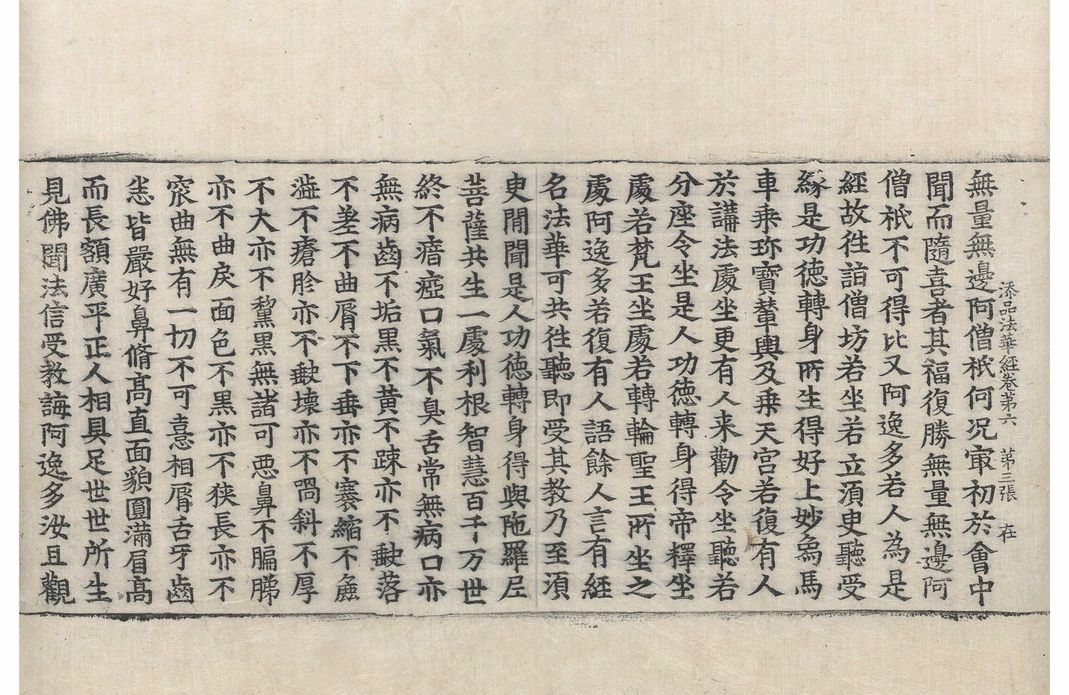 添品法華經卷第六　第三張　在
無量無邊阿僧祇何况㝡初於會中
聞而隨喜者其福復勝無量無邊阿
僧祇不可得比又阿逸多若人為是
經故徃詣僧坊若坐若立湏臾聽受
緣是功德轉身所生得好上妙象馬
車乗珎寶輦輿及乗天宮若復有人
於講法處坐更有人来勸令坐聽若
分座令坐是人功德轉身得帝釋坐
處若梵王坐處若轉輪聖王所坐之
處阿逸多若復有人語餘人言有經
名法華可共徃聽即受其教乃至湏
臾閒聞是人功德轉身得與陁羅尼
菩薩共生一處利根智慧百千万世
終不瘖瘂口氣不臭舌常無病口亦
無病齒不垢黑不黄不踈亦不䶢落
不差不曲脣不下垂亦不褰縮不麁
澁不瘡胗亦不䶢壞亦不喎斜不厚
不大亦不黧黑無諸可惡鼻不匾㔸
亦不曲戾面色不黑亦不狹長亦不
窊曲無有一切不可憙相脣舌牙齒
悉皆嚴好鼻脩髙直面貌圓滿眉髙
而長額廣平正人相具足世世所生
見佛聞法信受教誨阿逸多汝且觀